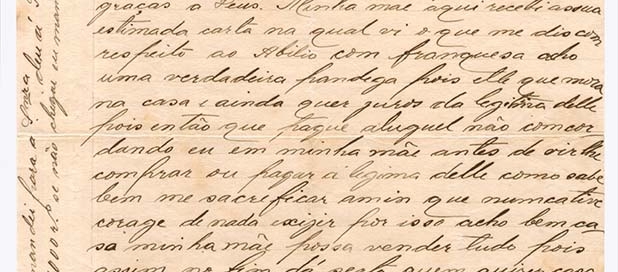 graças a Deus. Minha mãe aqui recebi a sua
estimada carta na qual vi o que me dis com
respeito ao Abilio com franquesa acho
uma verdadeira pandega pois elle que mora
na casa e ainda quer juros da legitima delle
pois então que pague aluguel não concor
dando eu em minha mãe antes de vir lhe
comprar ou pagar a legima delle como sabe
bem me sacreficar amin que nuncative
corage de nada exigir por isso acho bem ca
sa minha mãe possa vender tudo pois
assim no fim dá sesta quem quizer
mandei para a
1000 rs. se não chegar eu man